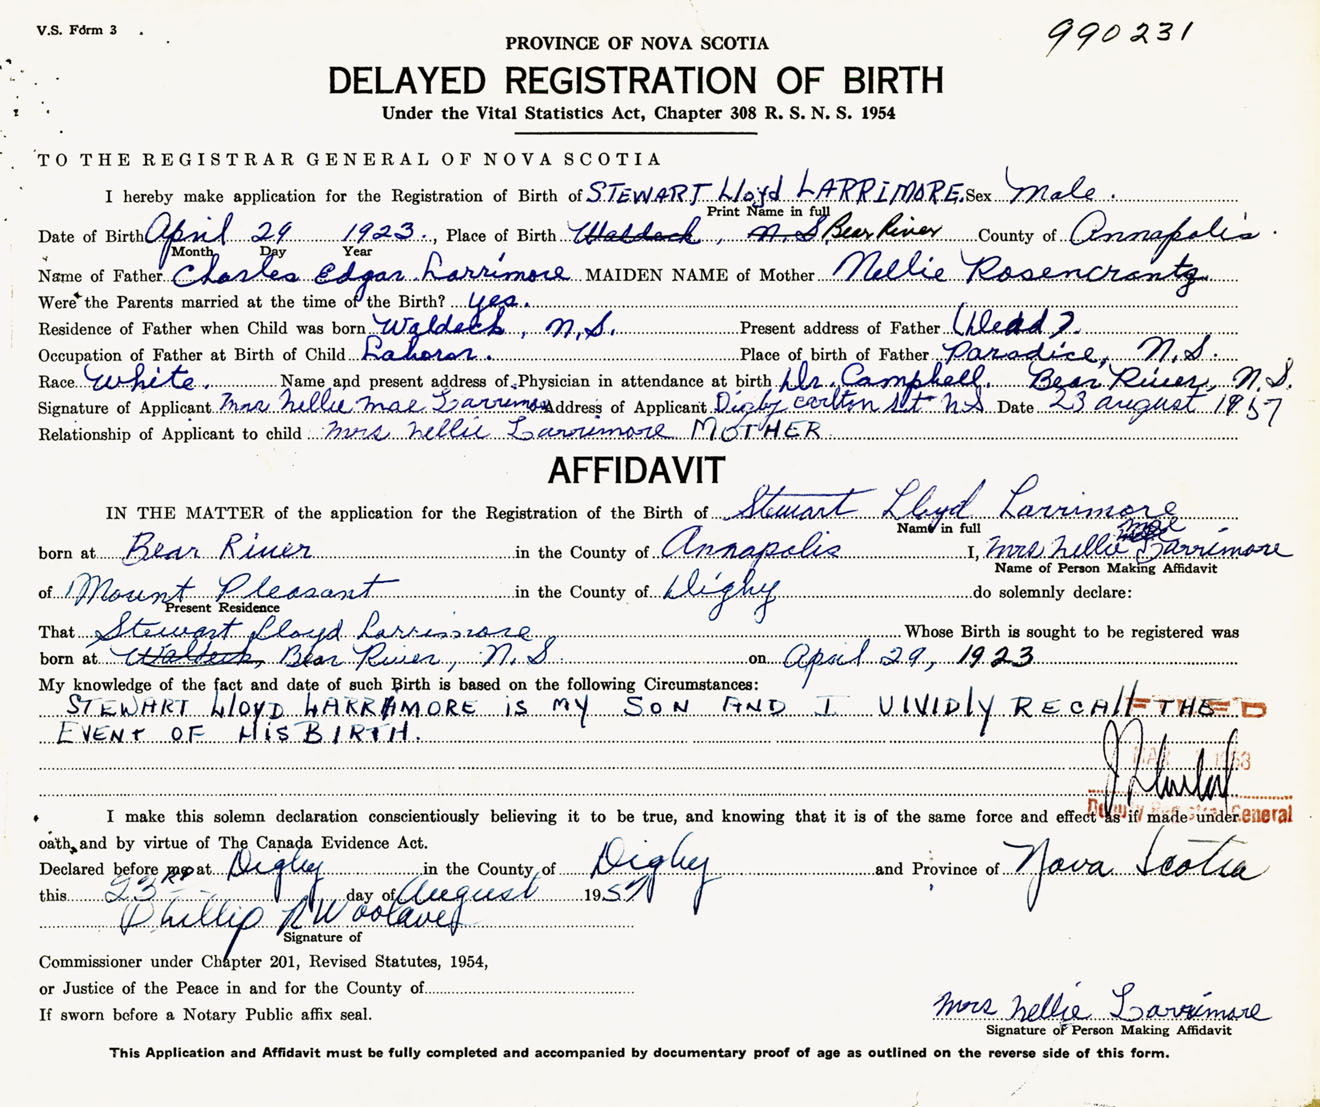 V.S. Form 3
990231
PROVINCE OF NOVA SCOTIA
DELAYED REGISTRATION OF BIRTH
Under the Vital Statistics Act, Chapter 308 R. S. N. S. 1954
TO THE REGISTRAR GENERAL OF NOVA SCOTIA
I hereby make application for the Registration of Birth of STEWART Lloyd LARRIMORE. Sex Male.
Print Name in full
Date of Birth April 29 1923., Place of Birth Waldeck, N.S. Bear River County of Annapolis.
Month Day Year
Name of Father Charles Edgar Larrimore MAIDEN NAME of Mother Nellie Rosencrantz
Were the Parents married at the time of the Birth? yes.
Residence of Father when Child was born Waldeck, N.S. Present address of Father (Dead).
Occupation of Father at Birth of Child Laboror. Place of birth of Father Paradice, N.S.
Race White. Name and present address of Physician in attendance at birth Dr. Campbell. Bear River, N.S.
Signature of Applicant Mrs Nellie Mae Larrimore Address of Applicant Digby carlton St N.S Date 23 august 1957
Relationship of Applicant to child Mrs Nellie Larrimore MOTHER
AFFIDAVIT
IN THE MATTER of the application for the Registration of the Birth of Stewart Lloyd Larrimore
Name in full
born at Bear River in the County of Annapolis I, Mrs Nellie Mae Larrimore
Name of Person Making Affidavit
of Mount Pleasant in the County of Digby do solemnly declare:
Present Residence
That Stewart Lloyd Larrimore Whose Birth is sought to be registered was
born at Waldeck, Bear River, N.S. on April 29, 1923
My knowledge of the fact and date of such Birth is based on the following Circumstances:
STEWART LLOYD LARRIMORE IS MY SON AND I VIVIDLY RECALL THE
EVENT OF HIS BIRTH.
Deputy Registrar General
I make this solemn declaration conscientiously believing it to be true, and knowing that it is of the same force and effect as if made under
oath, and by virtue of The Canada Evidence Act.
Declared before me at Digby in the County of Digby and Province of Nova Scotia
this 23RD day of August 1957
Phillip R Woolaver
Signature of
Commissioner under Chapter 201, Revised Statutes, 1954,
or Justice of the Peace in and for the County of
If sworn before a Notary Public affix seal.
Mrs Nellie Larrimore
Signature of Person Making Affidavit
This Application and Affidavit must be fully completed and accompanied by documentary proof of age as outlined on the reverse side of this form.